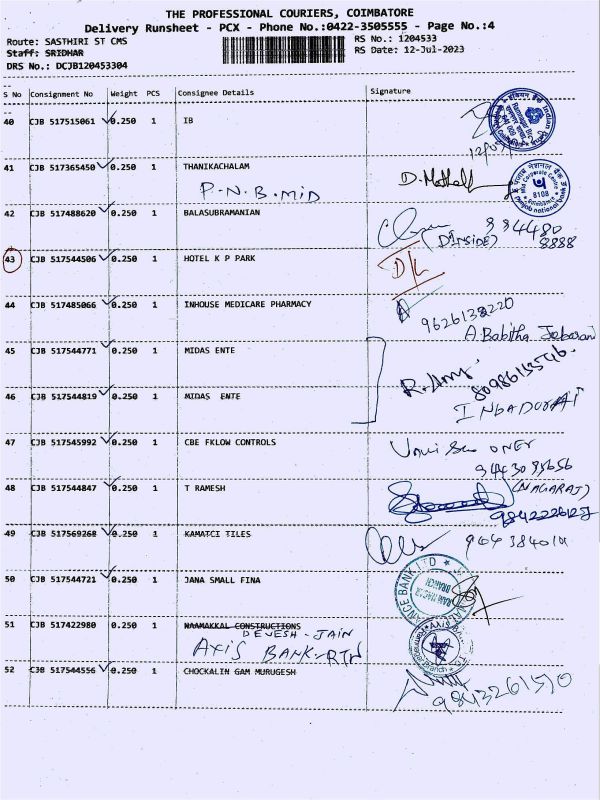 THE PROFESSIONAL COURIERS, COIMBATORE
Delivery Runsheet - PCX - Phone No.:0422-3505555 - Page No.:4
Route: SASTHIRI ST CMS
RS No.: 1204533
Staff: SRIDHAR
RS Date: 12-Jul-2023
DRS No.: DCJB120453304
S No Consignment No Weight PCS Consignee Details Signature
40 CJB 517515061 0.250 1 IB
41 CJB 517365450 0.250 1 THANIKACHALAM
P.N.B.MID
42 CJB 517488620 0.250 1 BALASUBRAMANIAN
(D INSIDE) 984480
8888
43 CJB 517544506 0.250 1 HOTEL K P PARK D/L
44 CJB 517485066 0.250 1 INHOUSE MEDICARE PHARMACY
9626138220
A. Babitha
45 CJB 517544771 0.250 1 MIDAS ENTE
46 CJB 517544819 0.250 1 MIDAS ENTE
INBADURAI
47 CJB 517545992 0.250 1 CBE FKLOW CONTROLS
48 CJB 517544847 0.250 1 T RAMESH
(NAGARAJ)
49 CJB 517569268 0.250 1 KAMATCI TILES
50 CJB 517544721 0.250 1 JANA SMALL FINA
51 CJB 517422980 0.250 1 NAAMAKKAL CONSTRUCTIONS
DEVESH - JAIN
AXIS BANK-RTN
52 CJB 517544556 0.250 1 CHOCKALIN GAM MURUGESH
9843261510